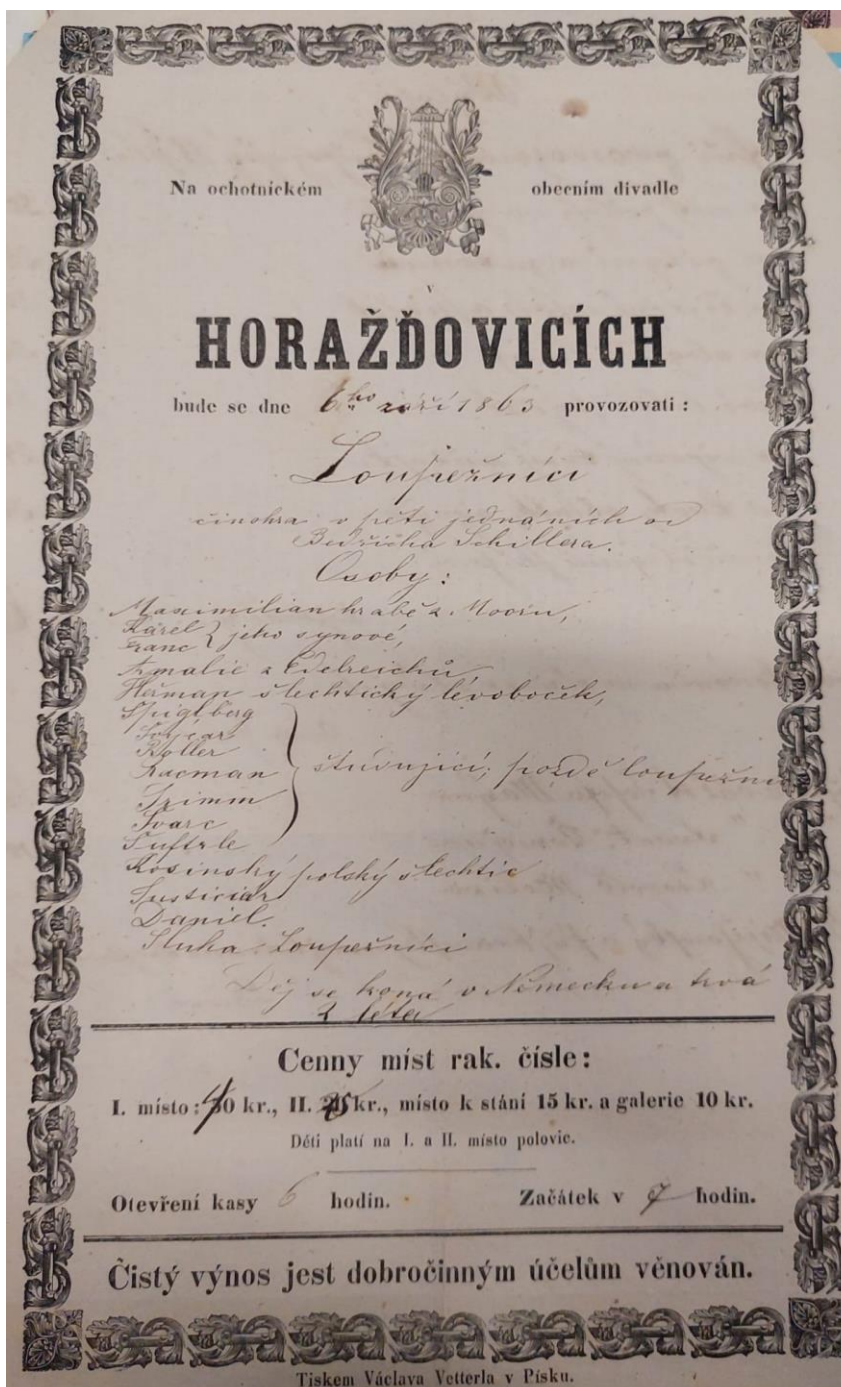 Na ochotnickém obecním divadle
v
HORAŽĎOVICÍCH
bude se dne 6ho září 1863 provozovati :
Loupežníci
činohra v pěti jednáních od
Bedřicha Schillera.
Osoby :
Maximilian hrabě z Mooru,
Karel
Franc } jeho synové,
Amalie z Edelreichů
Heřman šlechtický levoboček,
Špiglberg
Švýcar
Roller
Racman
študující; pozdě loupežní
Grimm
Švarc
Šufterle
Kosinský polský šlechtic
Justiciar
Daniel.
Sluha. Loupežníci
Děj se koná v Německu a trvá
2 léta
Cenny míst rak. čísle :
I. místo : 40 kr., II. kr., místo k stání 15 kr. a galerie 10 kr.
Děti platí na I. a II. místo polovic.
Otevření kasy 6 hodin. Začátek v 7 hodin.
Čistý výnos jest dobročinným účelům věnován.
Tiskem Václava Vetterla v Písku.